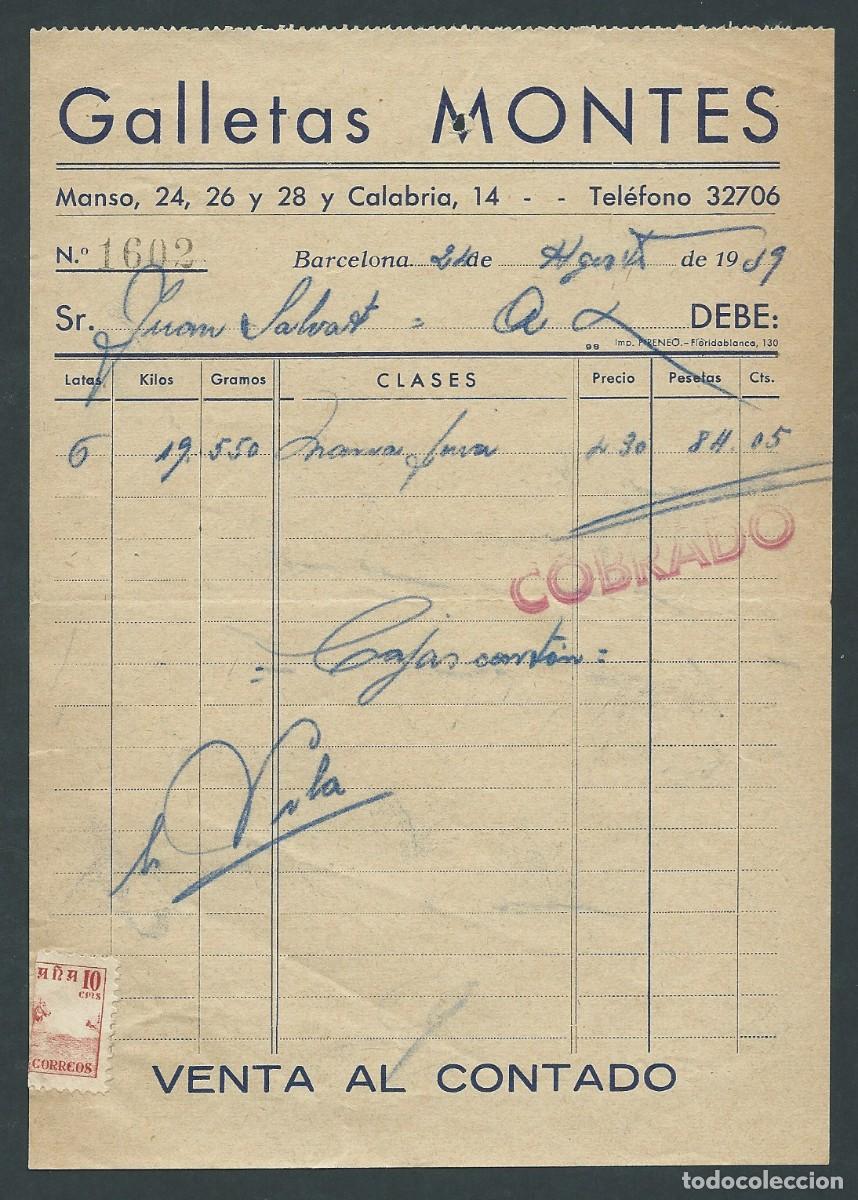 Galletas MONTES
Manso, 24, 26 y 28 y Calabria, 14 - - Teléfono 32706
N.º 1602 Barcelona 24 de Agost de 1939
Sr. Juan Salvat = DEBE:
99 Imp. PIRENEO.-Floridablanca, 130
Latas Kilos Gramos CLASES Precio Pesetas Cts.
6 19 550 maria fina 4 30 84 05
COBRADO
= Cajas cartón =
Vila
AÑA 10
CTMS
CORREOS
VENTA AL CONTADO
todocoleccion.net